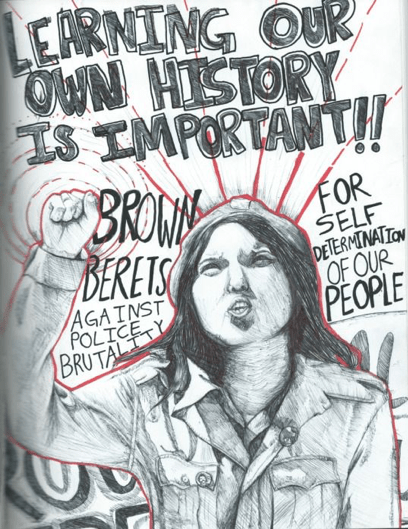 LEARNING OUR
OWN HISTORY
IS IMPORTANT!!
BROWN
BERETS
AGAINST
POLICE
BRUTALITY
FOR
SELF
DETERMINATION
OF OUR
PEOPLE